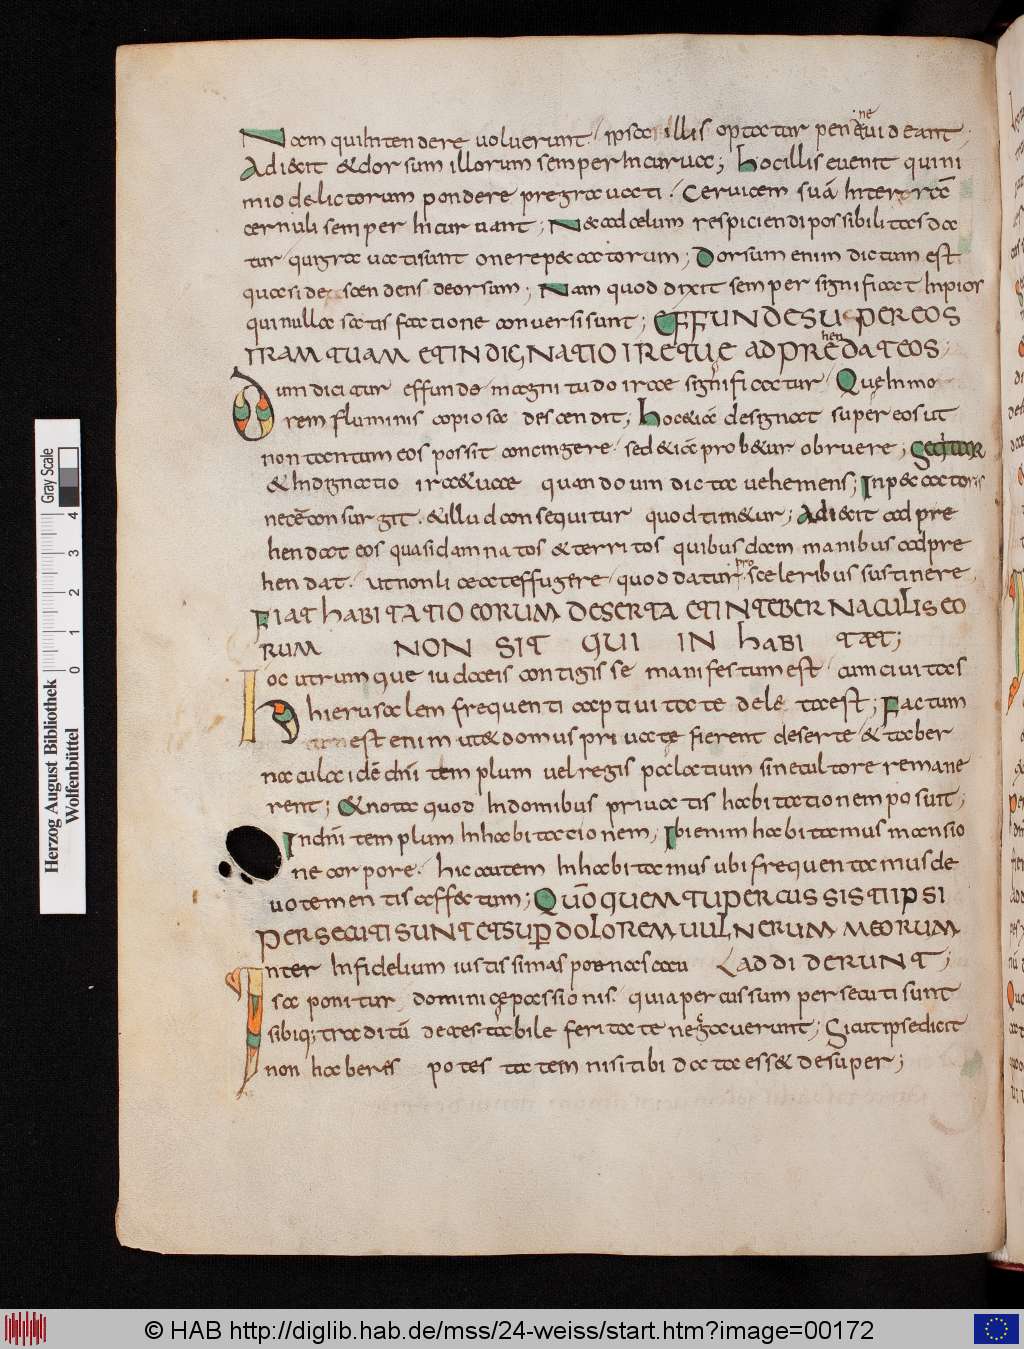 Nam qui intendere voluerunt ipsa illis optatur pen ne videant
Adiecit & dorsum illorum semper incurva; hoc illis evenit qui ni
mio delictorum pondere pregravati. Cervicem suā inter
cernuli semper incurvant; Nec ad cœlum respiciendi possibilitas da
tur qui gravati sunt onere peccatorum; Dorsum enim dictum est
quasi descendens deorsum; Nam quod dixit semper significat in pior
qui nulla satisfactione conversi sunt; EFFUNDE SUPER EOS
IRAM TUAM ET INDIGNATIO IRE TUE ADPREhenDAT EOS;
Dum dicatur effunde magnitudo irae significatur Que in mo
rem fluminis copiosa descendit; hoc & iā designat super eos ut
non tantum eos possit contingere sed & iā prob&ur obruere; Sequitur
& indignatio irae & uae quando um dicta vehemens; In peccatoris
necē consurgit. & illud consequitur quod tim&ur; Adiecit adpre
hendat eos quasi damnatos & territos quibusdam manibus adpre
hendat. ut non liceat effugere quod datur pro sceleribus sustinere
FIAT HABITATIO EORUM DESERTA ET IN TEBERNACULIS EO
RUM NON SIT QUI IN HABITAET;
hoc utrumque iudaeis contigisse manifestum est cum civitas
hierusalem frequenti captivitate deleta est; Factum
est enim ut & domus privatę fierent deserte & taber
nacula idē dn̄i templum vel regis palatium sine cultore remane
rent; & nota quod In domibus privatis habitationem posuit;
In dn̄i templum Inhabitacionem; Ibi enim habitamus mansio
ne corpore. hic autem Inhabitamus ubi frequentamus de
votementis affectum; QUŌ QUEM TU PERCUSSISTI IPSI
PERSECUTI SUNT ET SUP DOLOREM VULNERUM MEORUM
Inter Infidelium iustissimas poenas caeu LADDIDERUNT;
sa ponitur dominicę passionis. quia percussum persecuti sunt
sibiq; traditū detestabile feritate negaverunt; Sicut ipse dicit
non haberes potestatem nisi tibi data ess& desuper;
Herzog August Bibliothek
Wolfenbüttel
Gray Scale
0 1 2 3 4
© HAB http://diglib.hab.de/mss/24-weiss/start.htm?image=00172